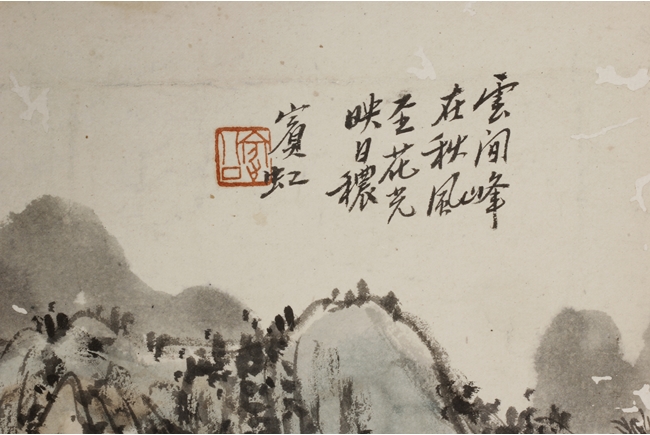 雲间峰
在秋風
圣花光
映日穠
賓虹